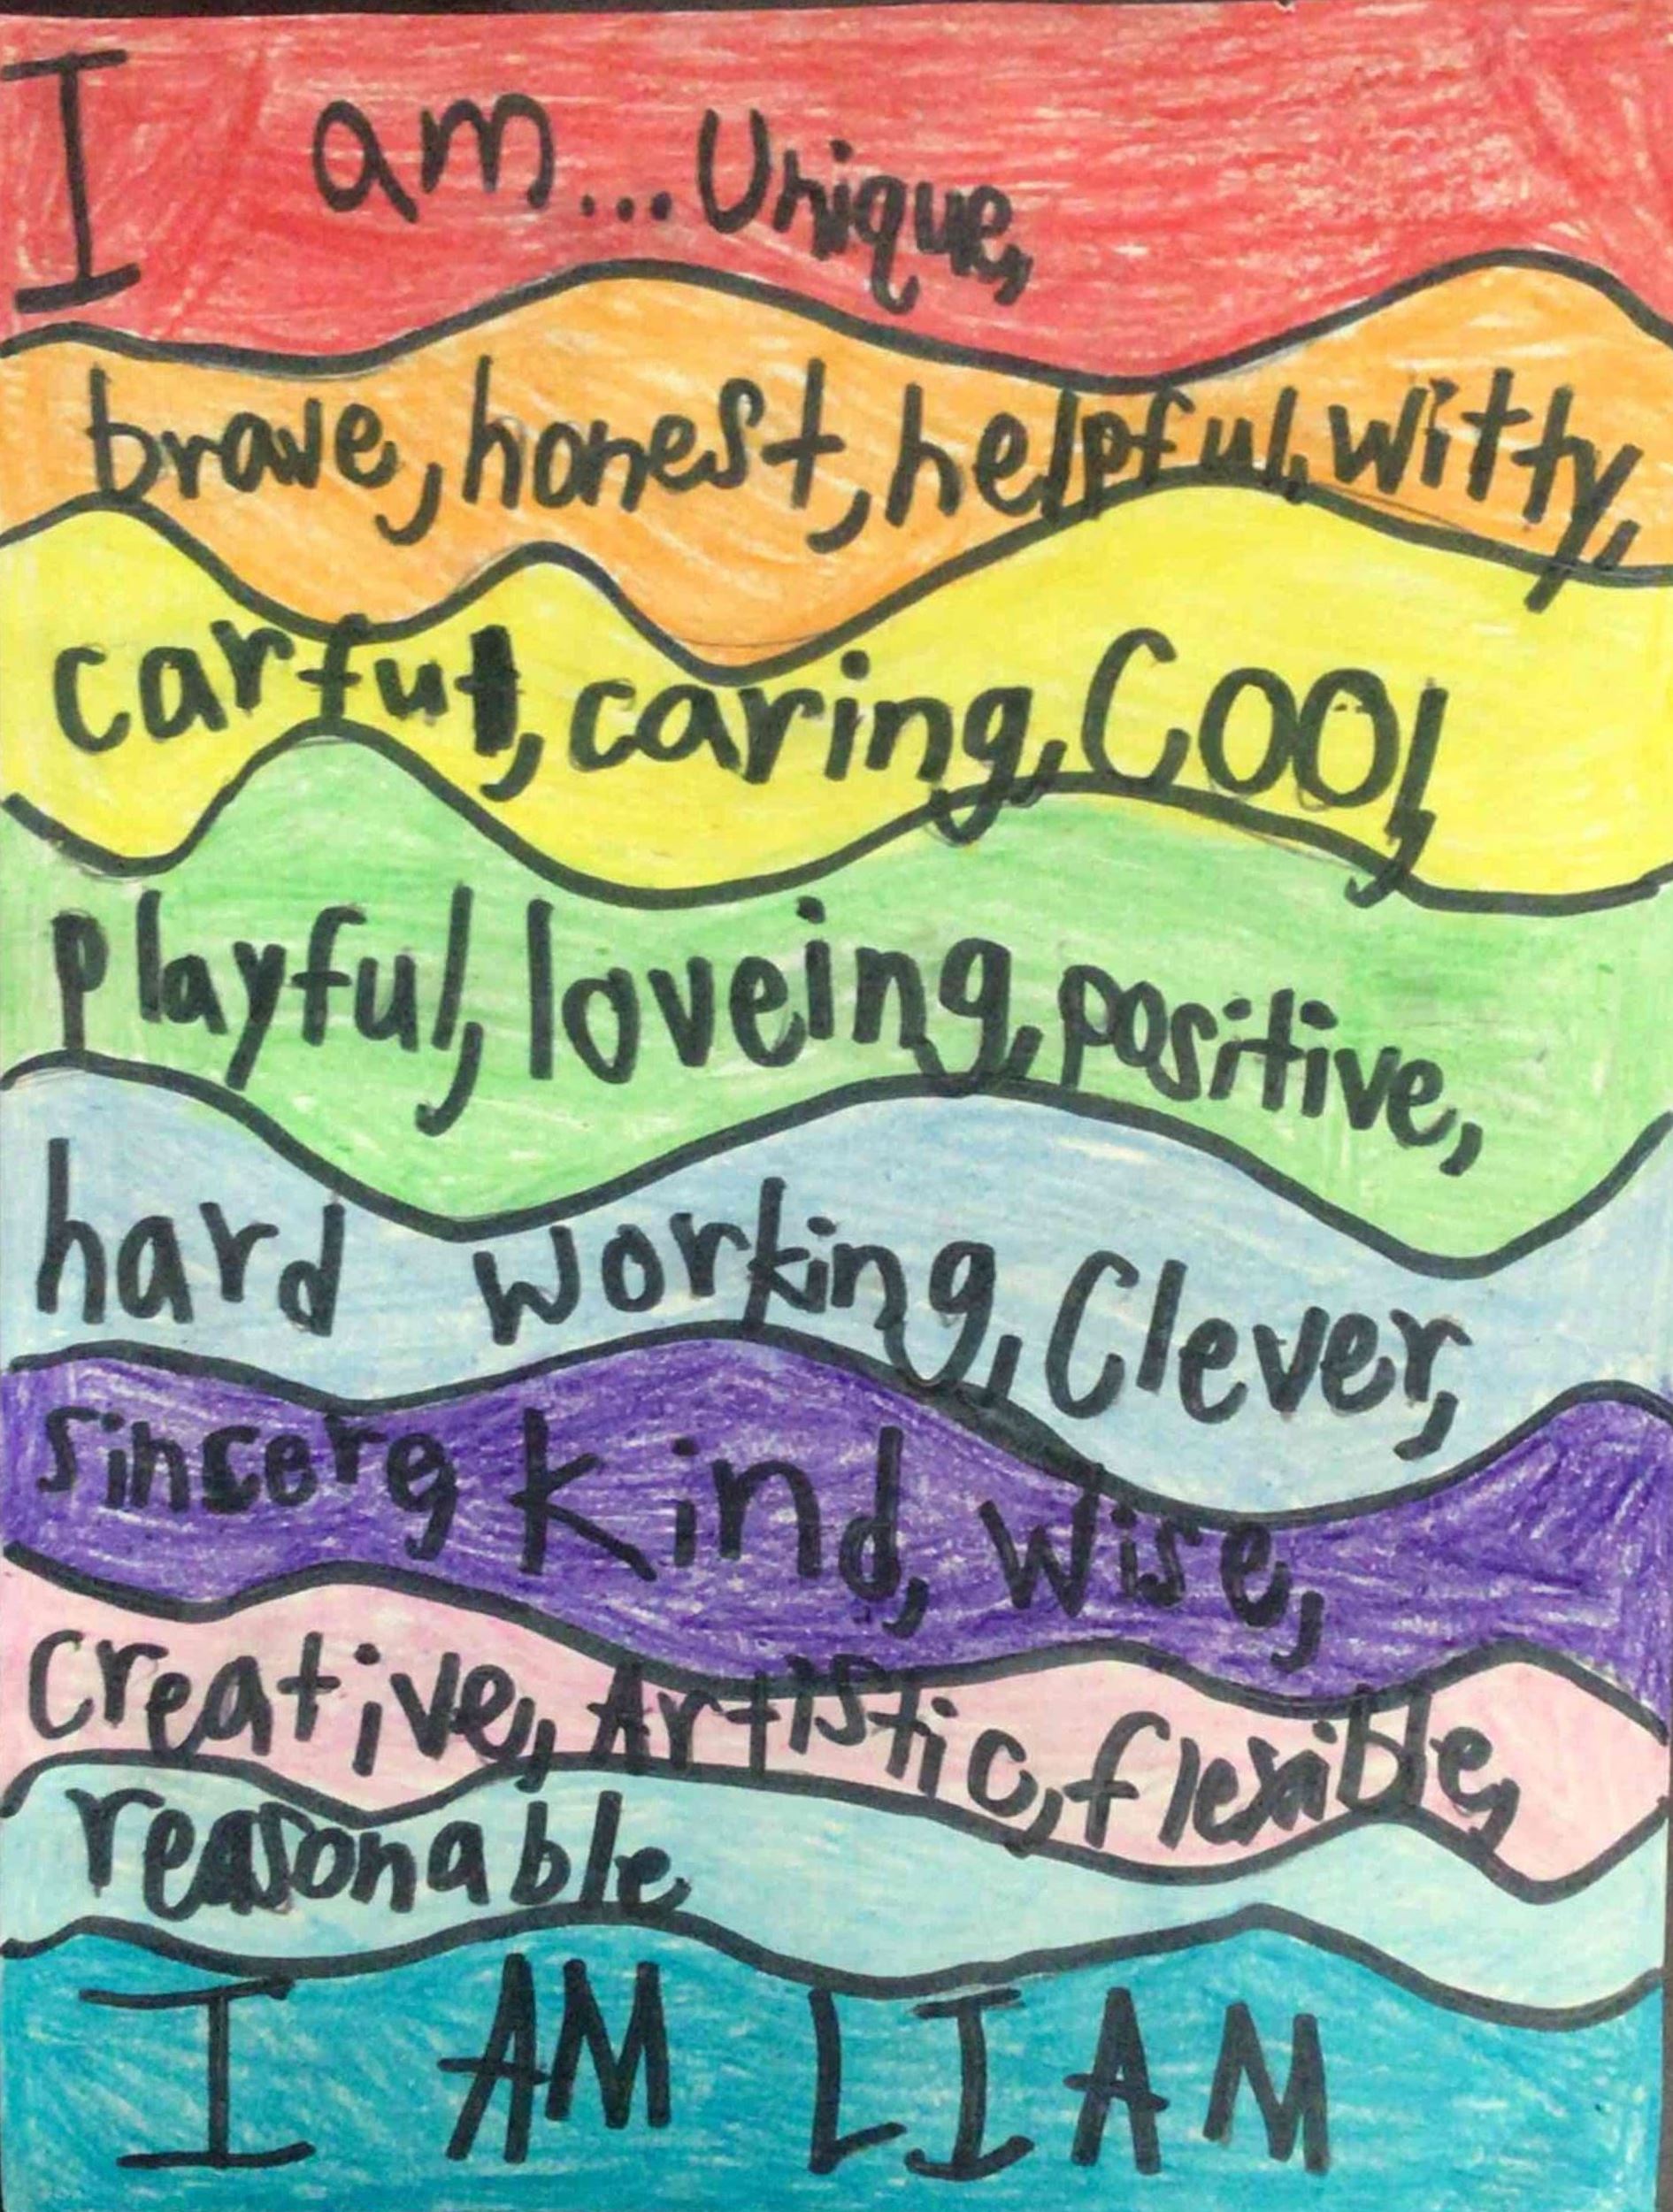 I am... Unique,
brave, honest, helpful, witty,
carful, caring, Cool,
playful, loveing, positive,
hard working, Clever,
sincere, kind, wise,
creative, Artistic, flexible,
reasonable
I AM LIAM